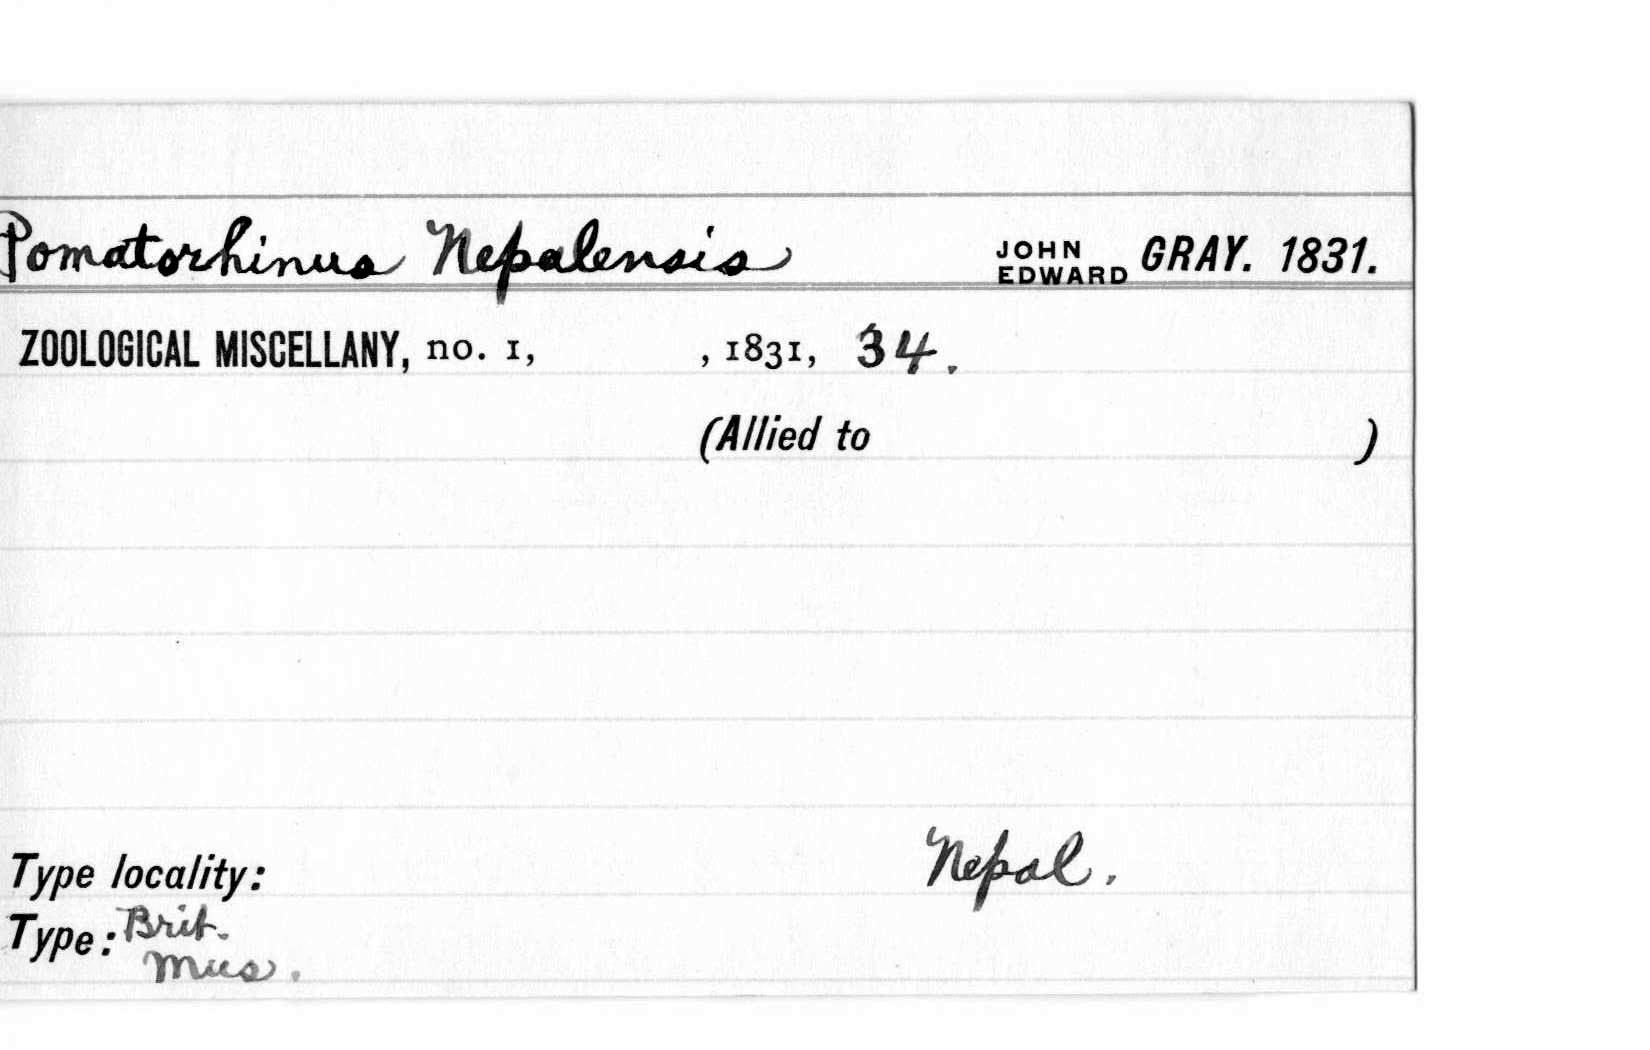 Pomatorhinus Nepalensis JOHN EDWARD GRAY. 1831.
ZOOLOGICAL MISCELLANY, no. 1, , 1831, 34.
(Allied to )
Type locality: Nepal.
Type: Brit.
Mus.